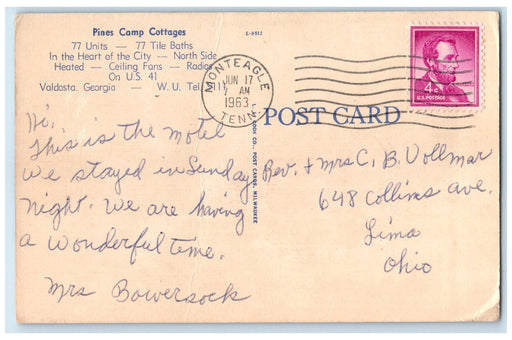 Pines Camp Cottages
77 Units — 77 Tile Baths
In the Heart of the City — North Side
Heated — Ceiling Fans — Radios
On U.S. 41
Valdosta, Georgia — W. U. Tel.
E-9517
MONTEAGLE
JUN 17
7 AM
1963
TENN.
4c
U.S. POSTAGE
POST CARD
CO., POST CARDS, MILWAUKEE
Hi,
This is the motel
we stayed in Sunday
night. We are having
a wonderful time.
Mrs Bowersock
Rev. + Mrs C. B. Vollmar
648 Collins ave.
Lima
Ohio